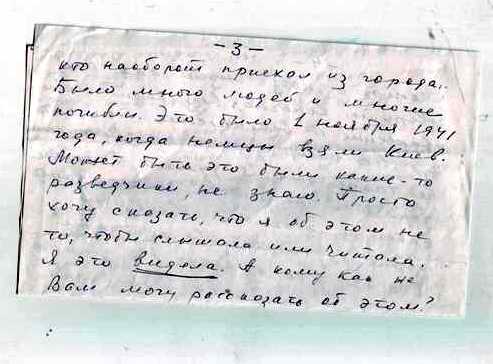 -3-
кто наоборот приехал из города.
Было много людей и многие
погибли. Это было 1 ноября 1941
года, когда немцы взяли Киев.
Может быть это были какие-то
разведчики, не знаю. Просто
хочу сказать, что я об этом не
то, чтобы слышала или читала.
Я это видела. А кому как не
Вам могу рассказать об этом?